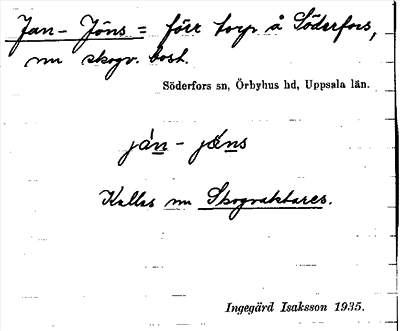 Jan-Jöns = förr torp å Söderfors,
nu skogv. bost.
Söderfors sn, Örbyhus hd, Uppsala län.
ján - jö́ns
Kallas nu Skogvaktares.
Ingegärd Isaksson 1935.